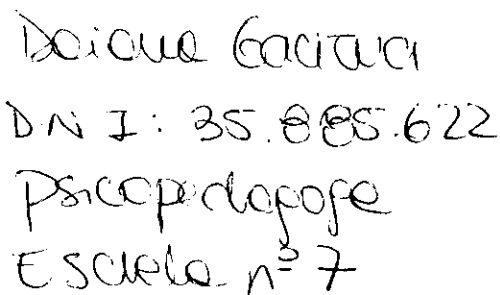 Daiana
DNI: 35.885.622
Psicopedagoga
Escuela n° 7